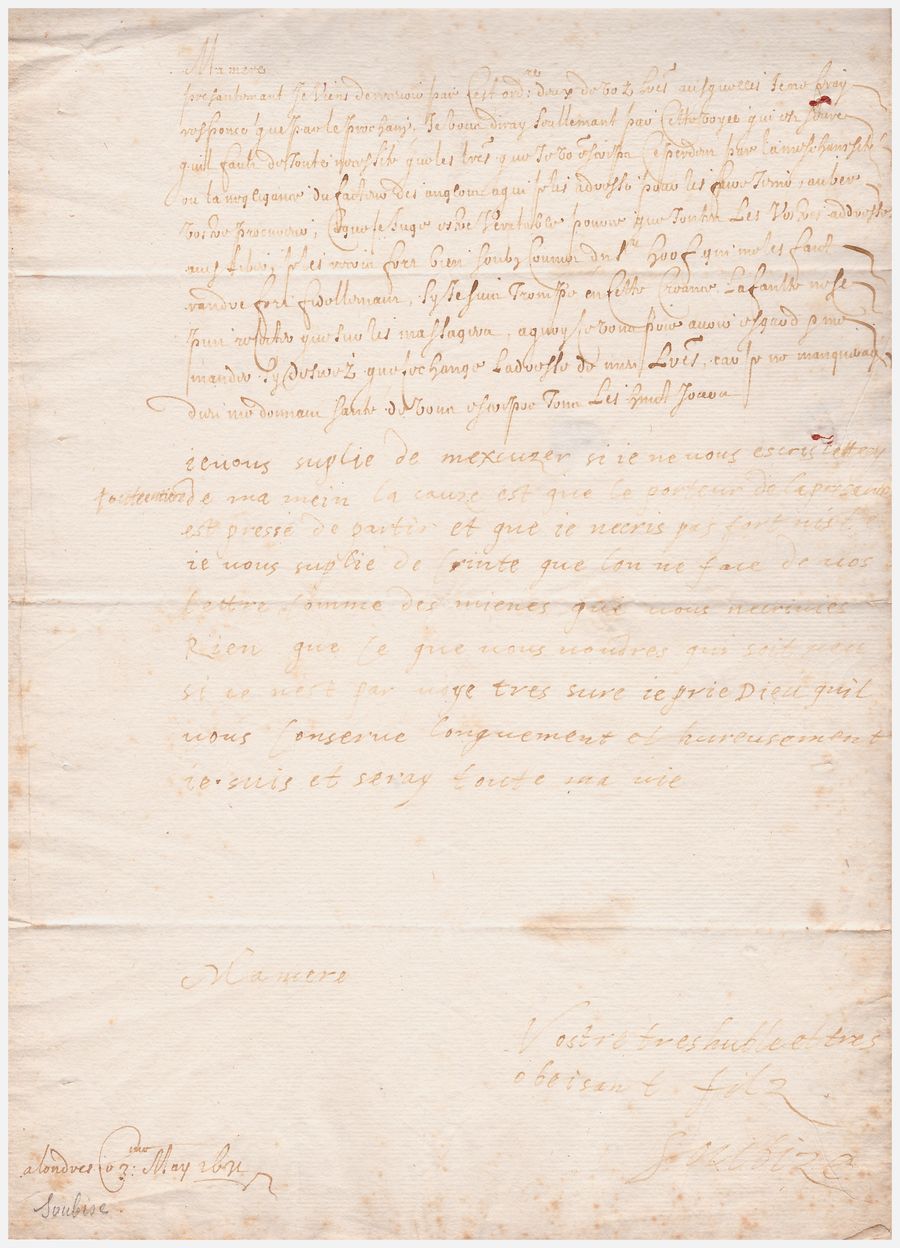 Mamere
presantemant Je Viens de recevoir par Cest ord.re deux de voz Lres ausquelles Je ne feray
responce que par le prochain. Je vous diray seullemant par Cette voyee qui est seure
quil fault de toute necessité que les lres que Je vo9 escrips se perdent par la meschanseté
ou la negligance du facteur des anglois a qui je les adresse pour les faire Tenir
vostre procureur, Et que Je Juge estre Veritable pource que Toutes Les Vostres addressees
je les recoy fort bien soubz Couvert du sr Hoof qui me les faict
randre fort fidellemant, Sy Je suis Trompé en Cette Creance, La faulte ne se
peut rejecter que sur les massagers, a quoy Je vous prie avoir esgard
mander sy desirez que Je change Ladresse de mes Lres, car Je ne manqueray
dieu me donnant santé de vous escripre Tous Les huict Jours
ie vous suplie de mexcuzer si ie ne vous escris lettre
de ma mein la cauze est que le porteur de la presante
est pressé de partir et que ie necris pas fort
ie vous suplie de creinte que lon ne face de vos
lettre comme des mienes que vous necrivies
Rien que ce que vous voudres qui soit veu
si ce nest par voye tres sure ie prie Dieu quil
vous conserve longuement et hureusement
ie suis et seray toute ma vie
Mamere
Vostre tres huble et tres
obeisant filz
Soubize
a londres Ce 3.me May 1631
Soubise